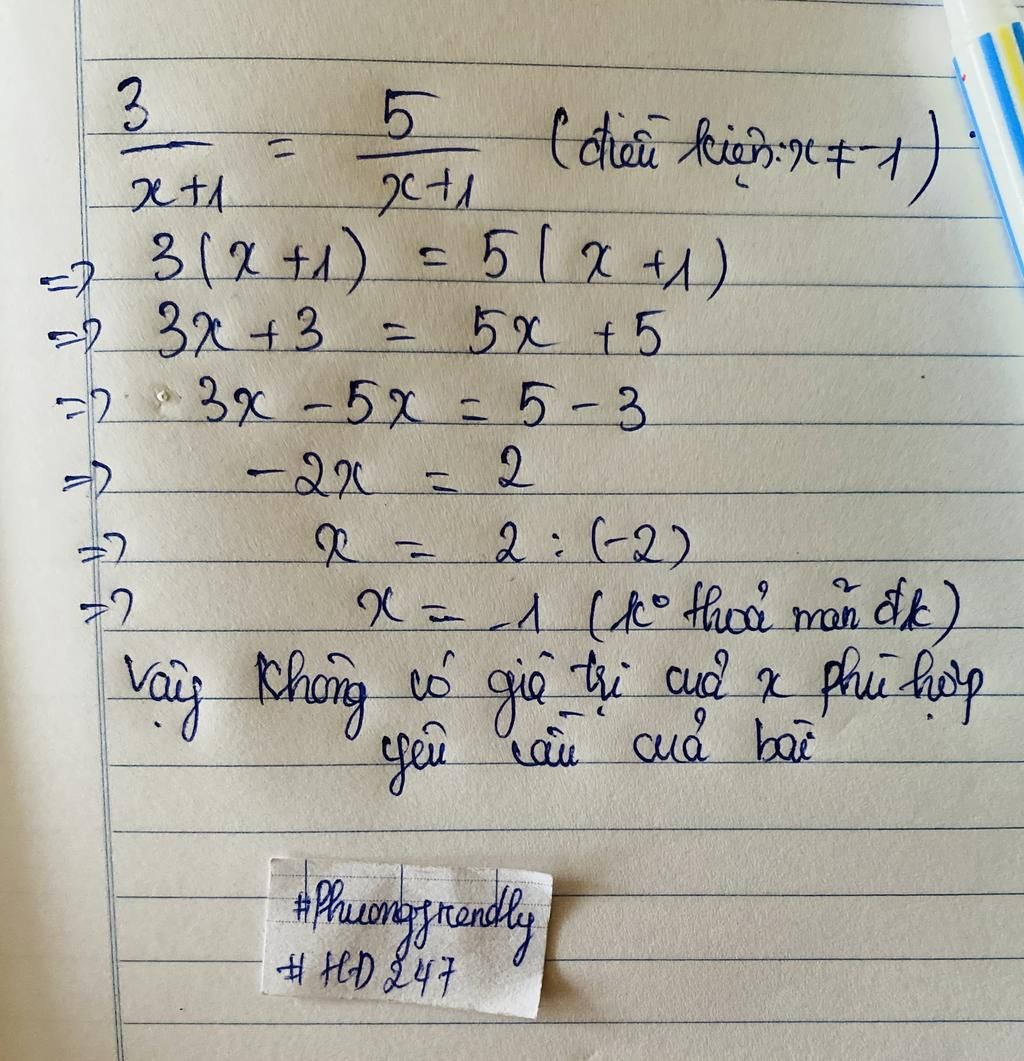 3/x+1 = 5/x+1 (điều kiện: x ≠ -1)
=> 3(x+1) = 5(x+1)
=> 3x+3 = 5x+5
=> 3x-5x = 5-3
=> -2x = 2
=> x = 2:(-2)
=> x = -1 (k° thoả mãn đk)
Vậy không có giá trị của x phù hợp
yêu cầu của bài
#Phuongfrendly
#HD247